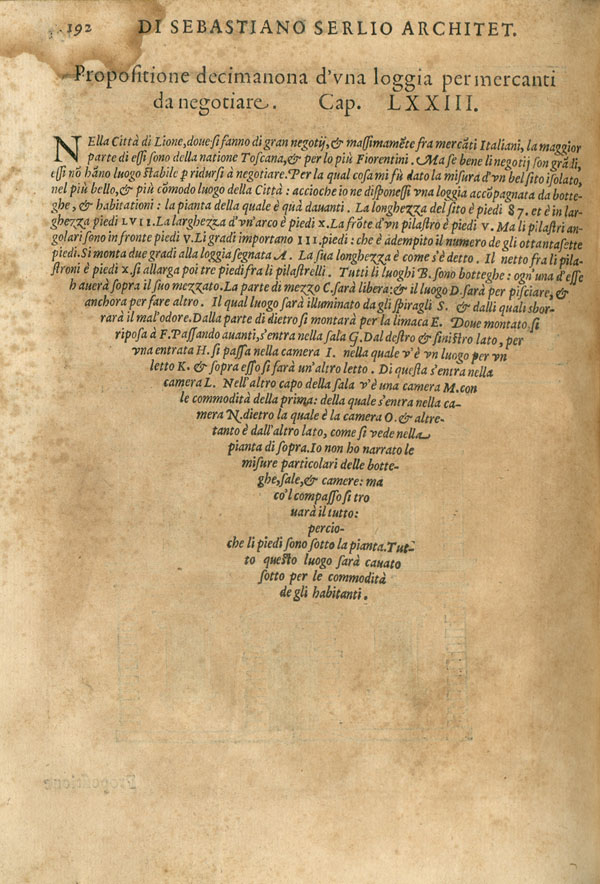 192 DI SEBASTIANO SERLIO ARCHITET.
Propositione decimanona d'vna loggia per mercanti
da negotiare. Cap. LXXIII.
NElla Città di Lione, doue si fanno di gran negotij, & massimamēte fra mercāti Italiani, la maggior
parte di essi sono della natione Toscana, & per lo più Fiorentini. Ma se bene li negotij son grādi,
essi nō hāno luogo stabile p ridursi à negotiare. Per la qual cosa mi fù dato la misura d'vn bel sito isolato,
nel più bello, & più cōmodo luogo della Città: accioche io ne disponessi vna loggia accōpagnata da botte-
ghe, & habitationi: la pianta della quale è quà dauanti. La longhezza del sito è piedi 87. et è in lar-
ghezza piedi LVII. La larghezza d'vn'arco è piedi x. La frōte d'vn pilastro è piedi v. Ma li pilastri an-
golari sono in fronte piedi v. Li gradi importano III. piedi: che è adempito il numero de gli ottantasette
piedi. Si monta due gradi alla loggia segnata A. La sua longhezza è come s'è detto. Il netto fra li pila-
stroni è piedi x. si allarga poi tre piedi fra li pilastrelli. Tutti li luoghi B. sono botteghe: ogn'una d'esse
hauerà sopra il suo mezzato. La parte di mezzo C. sarà libera: & il luogo D. sarà per pisciare, &
anchora per fare altro. Il qual luogo sarà illuminato da gli spiragli S. & dalli quali sbor-
rarà il mal'odore. Dalla parte di dietro si montarà per la limaca E. Doue montato, si
riposa à F. Passando auanti, s'entra nella sala G. Dal destro & sinistro lato, per
vna entrata H. si passa nella camera I. nella quale v'è vn luogo per vn
letto K. & sopra esso si farà un'altro letto. Di questa s'entra nella
camera L. Nell'altro capo della sala v'è una camera M. con
le commodità della prima: della quale s'entra nella ca-
mera N. dietro la quale è la camera O. & altre-
tanto è dall'altro lato, come si vede nella
pianta di sopra. Io non ho narrato le
misure particolari delle botte-
ghe, sale, & camere: ma
co'l compasso si tro
uarà il tutto:
percio-
che li piedi sono sotto la pianta. Tut-
to questo luogo sarà cauato
sotto per le commodità
de gli habitanti.
Propositione